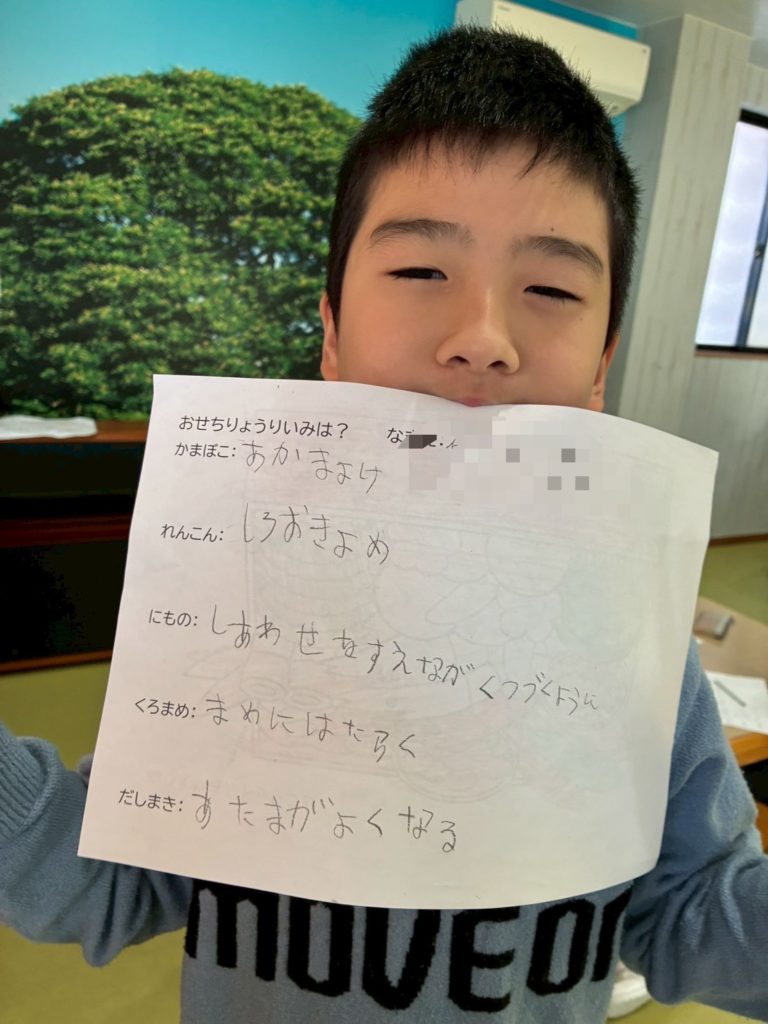 おせちりょうりいみは？ な
かまぼこ：あかまよけ
れんこん：しろおきよめ
にもの：しあわせをすえながくつづくように
くろまめ：まめにはたらく
だしまき：あたまがよくなる
MOVEON